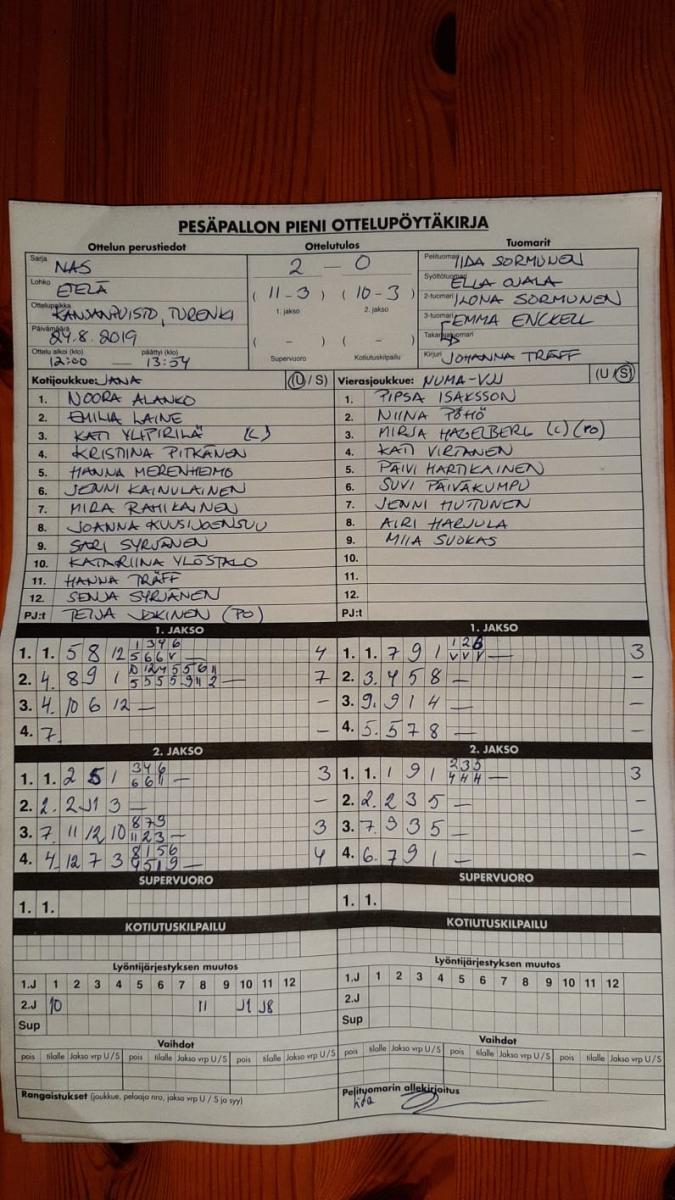 PESÄPALLON PIENI OTTELUPÖYTÄKIRJA
Ottelun perustiedot Ottelutulos Tuomarit
Sarja NAS
Lohko ETELÄ
Ottelupaikka KANSANPUISTO, TURENKI
Päivämäärä 24.8.2019
Ottelu alkoi (klo) päättyi (klo)
12:00 — 13:54
2 — 0
(11-3) (10-3)
1. jakso 2. jakso
( - ) ( - )
Supervuoro Kotiutuskilpailu
Pelituomari IIDA SORMUNEN
Syöttötuomari ELLA OJALA
2-tuomari ILONA SORMUNEN
3-tuomari EMMA ENCKELL
Takarajatuomari
Kirjuri JOHANNA TRÄFF
Kotijoukkue: JANA (U / S)
1. NOORA ALANKO
2. EMILIA LAINE
3. KATI YLIPIRILÄ (C)
4. KRISTIINA PITKÄNEN
5. HANNA MERENHEIMO
6. JENNI KAINULAINEN
7. MIRA RAHIKAINEN
8. JOANNA KUUSIJOENSUU
9. SARI SYRJÄNEN
10. KATARIINA YLÖSTALO
11. HANNA TRÄFF
12. SENJA SYRJÄNEN
PJ:t TEIJA JOKINEN (PO)
Vierasjoukkue: NUMA-VJU (U / S)
1. PIPSA ISAKSSON
2. NIINA PÖHÖ
3. MIRJA HAGELBERG (C) (PO)
4. KATI VIRTANEN
5. PÄIVI HARTIKAINEN
6. SUVI PÄIVÄKUMPU
7. JENNI HUTTUNEN
8. AIRI HARJULA
9. MIIA SUOKAS
10.
11.
12.
PJ:t
1. JAKSO
1. 1. 5 8 12 1 3 4 6 — 4
5 6 6 V
2. 4. 8 9 1 — 7
3. 4. 10 6 12 — -
4. 7. -
1. JAKSO
1. 1. 7 9 1 — 3
V V V
2. 3. 4 5 8 — -
3. 9. 9 1 4 — -
4. 5. 5 7 8 — -
2. JAKSO
1. 1. 2 5 1 3 4 6 — 3
6 6 11
2. 2. 2 J1 3 — -
3. 7. 11 12 10 8 7 9 — 3
11 2 3
4. 4. 12 7 3 8 1 5 6 — 4
2. JAKSO
1. 1. 1 9 1 2 3 5 — 3
4 4 4
2. 2. 2 3 5 — -
3. 7. 9 3 5 — -
4. 6. 7 9 1 — -
SUPERVUORO
1. 1.
SUPERVUORO
1. 1.
KOTIUTUSKILPAILU
KOTIUTUSKILPAILU
Lyöntijärjestyksen muutos
1.J 1 2 3 4 5 6 7 8 9 10 11 12
2.J 10 11 J1 J8
Sup
Lyöntijärjestyksen muutos
1.J 1 2 3 4 5 6 7 8 9 10 11 12
2.J
Sup
Vaihdot
pois tilalle Jakso vrp U / S pois tilalle Jakso vrp U / S pois tilalle Jakso vrp U / S
Vaihdot
pois tilalle Jakso vrp U / S pois tilalle Jakso vrp U / S pois tilalle Jakso vrp U / S
Rangaistukset (joukkue, pelaaja nro, jakso vrp U / S ja syy)
Pelituomarin allekirjoitus